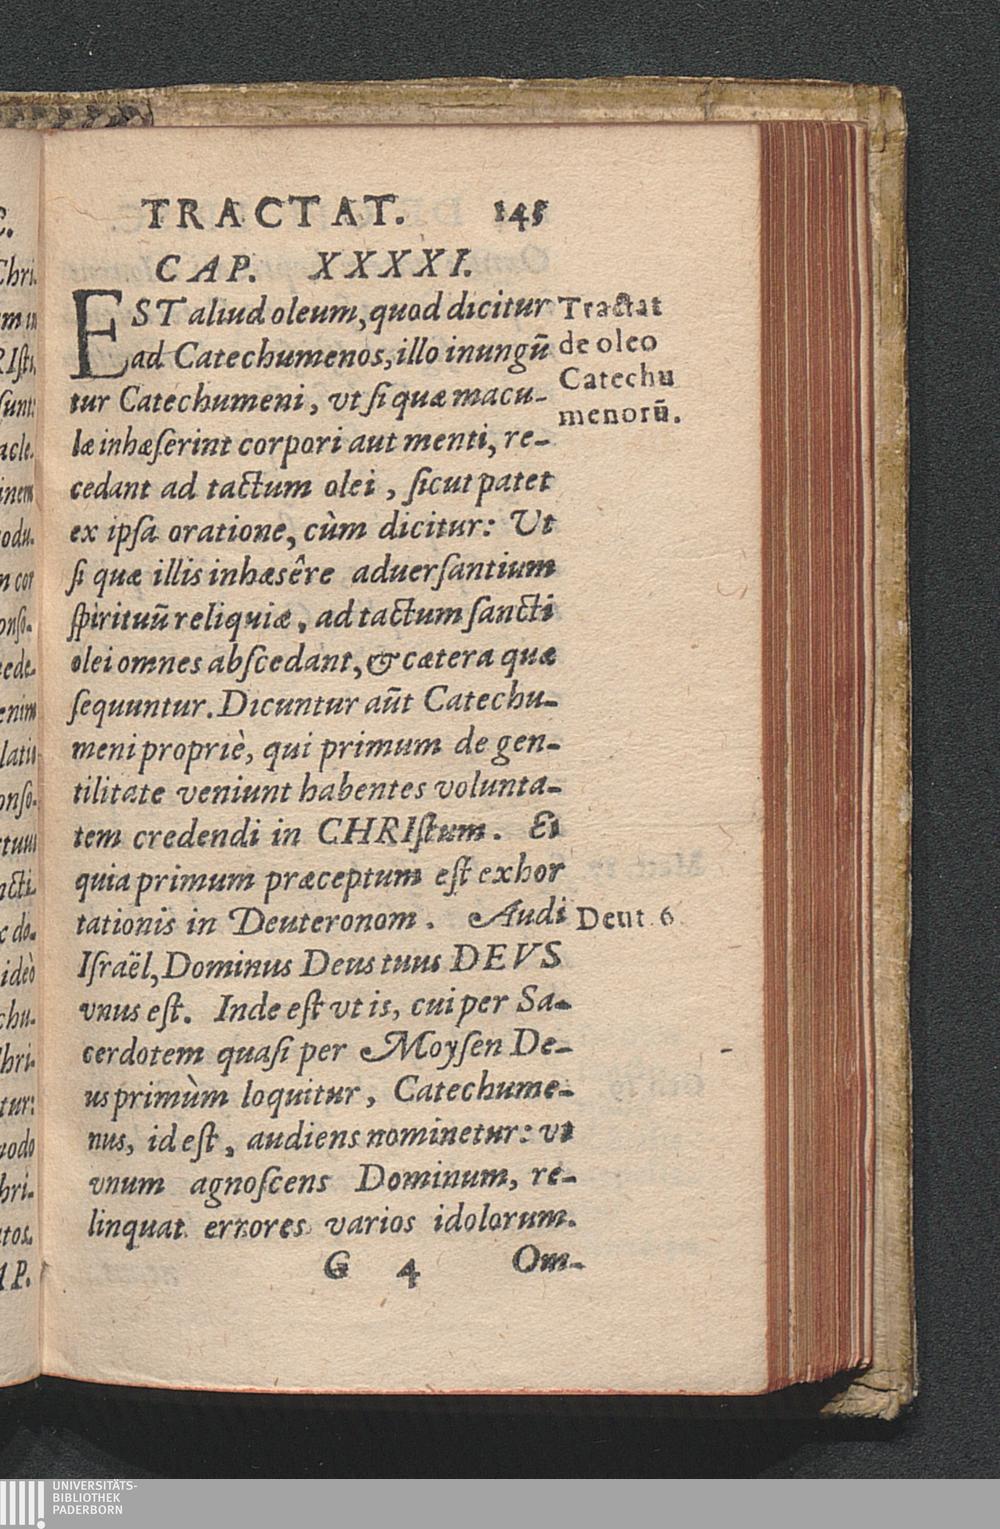 TRACTAT. 145
CAP. XXXXI.
EST aliud oleum, quod dicitur
ad Catechumenos, illo inungũ
tur Catechumeni, vt ſi quæ macu-
læ inhæſerint corpori aut menti, re-
cedant ad tactum olei, ſicut patet
ex ipſa oratione, cùm dicitur: Ut
ſi quæ illis inhæsêre aduerſantium
ſpirituũ reliquiæ, ad tactum ſancti
olei omnes abſcedant, & cætera quæ
ſequuntur. Dicuntur aũt Catechu-
meni propriè, qui primum de gen-
tilitate veniunt habentes volunta-
tem credendi in CHRIſtum. Et
quia primum præceptum eſt exhor
tationis in Deuteronom. Audi
Iſraël, Dominus Deus tuus DEVS
vnus eſt. Inde eſt vt is, cui per Sa-
cerdotem quaſi per Moyſen De-
us primùm loquitur, Catechume-
nus, id eſt, audiens nominetur: vt
vnum agnoſcens Dominum, re-
linquat errores varios idolorum.
G 4 Om-
Tractat
de oleo
Catechu
menorũ.
Deut. 6
C.
Chri-
RIſti,
acle-
inem
odu-
m cor
onſo-
ede-
enim
latiu
onſo-
ncti-
c do-
ideò
chu-
hri-
tur:
uodo
hri-
tos.
AP.
UNIVERSITÄTS-
BIBLIOTHEK
PADERBORN